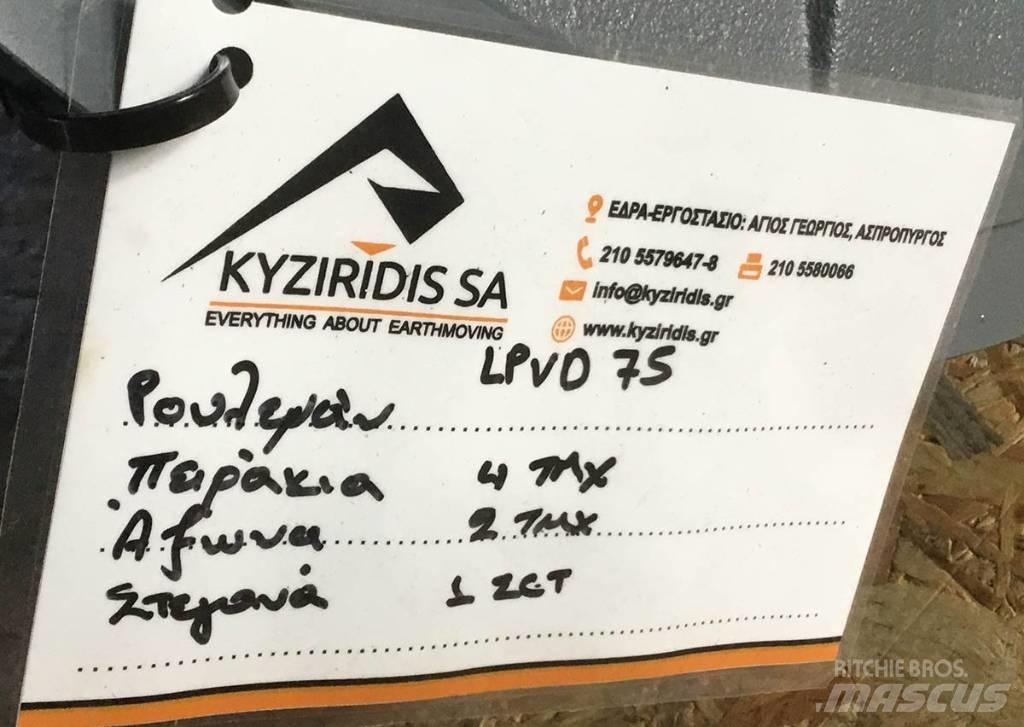 KYZIRIDIS SA
EVERYTHING ABOUT EARTHMOVING
ΕΔΡΑ-ΕΡΓΟΣΤΑΣΙΟ: ΑΓΙΟΣ ΓΕΩΡΓΙΟΣ, ΑΣΠΡΟΠΥΡΓΟΣ
210 5579647-8 210 5580066
info@kyziridis.gr
www.kyziridis.gr
LPVD 75
Ρουλεμάν
Πειράκια 4 ΤΜΧ
Άξωνα 2 ΤΜΧ
Στεγανά 1 ΣΕΤ
RITCHIE BROS.
MASCUS